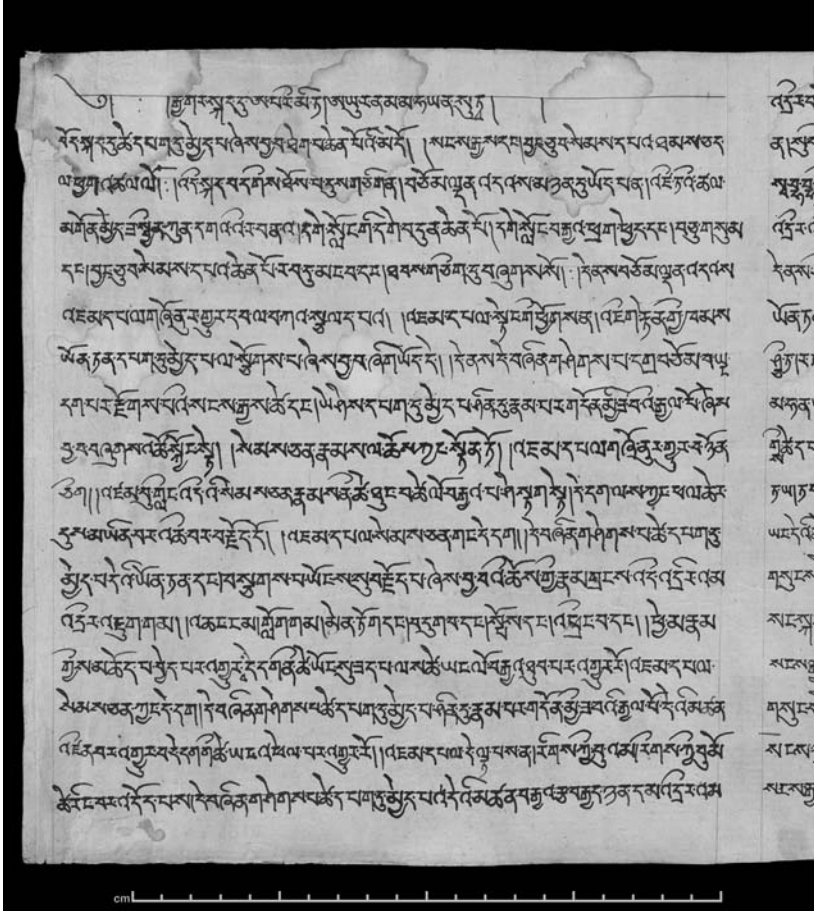 ༄། ། : །རྒྱ་གར་སྐད་དུ་ཨ་པ་རི་མི་ཏ། ཨ་ཡུར་ན་མ་མ་ཧ་ཡན་སུ་ཏྲ། །
བོད་སྐད་དུ་ཚེ་དཔག་དུ་མྱེད་པ་ཞེས་བྱ་བ་ཐེག་པ་ཆེན་པོའི་མདོ། །སངས་རྒྱས་དང་བྱང་ཆུབ་སེམས་དཔའ་ཐམས་ཅད་
ལ་ཕྱག་འཚལ་ལོ། : །འདི་སྐད་བདག་གིས་ཐོས་པ་དུས་གཅིག་ན། བཅོམ་ལྡན་འདས་མཉན་དུ་ཡོད་པ་ན། འཛེ་ཏའི་ཚལ་
མགོན་མྱེད་ཟས་སྦྱིན་ཀུན་དགའ་འི་ར་བ་ན། དགེ་སློང་གི་དགེ་འདུན་ཆེན་པོ། དགེ་སློང་བརྒྱའ་ཕྲག་ཕྱེད་དང་། བཅུ་གསུམ་
དང་། བྱང་ཆུབ་སེམས་དཔའ་ཆེན་པོ་རབ་དུ་མང་བ་དང་། ཐབས་གཅིག་དུ་བཞུགས་སོ། : །དེ་ནས་བཅོམ་ལྡན་འདས་
འཇམ་དཔལ་གཞོ་ནུར་གྱུར་པ་ལ་བཀའ་སྩལད་པའ། །འཇམ་དཔལ་སྟེང་གི་ཕྱོགས་ན། འཇིག་རྟེན་གྱི་ཁམས་
ཡོན་ཏན་དཔག་དུ་མྱེད་པ་ལ་སྩོགས་པ་ཞེས་བྱ་བ་ཞིག་ཡོད་དེ། །དེ་ན་དེ་བཞིན་གཤེགས་པ་དགྲ་བཅོམ་བ་ཡང་
དག་པར་རྫོགས་པའི་སངས་རྒྱས་ཚེ་དང་། ཡེ་ཤེས་དཔག་དུ་མྱེད་པ་ཤིན་དུ་རྣམ་པར་གདོན་མྱི་ཟ་བའི་རྒྱལ་པོ་ཞེས་
བྱ་བ་བཞུགས་འཚོ་སྐྱོང་སྟེ། །སེམས་ཅན་རྣམས་ལ་ཆོས་ཀྱང་སྟོན་ཏོ། །འཇམ་དཔལ་གཞོ་ནུར་གྱུར་པ་ཉོན་
ཅིག། །འཛམ་བུ་གླིང་འདི་འི་སེམས་ཅན་རྣམས་ནི་ཚེ་ཐུང་བ་ཚེ་ལོ་བརྒྱའ་པ་ཤ་སྟག་སྟེ། དེ་དག་ལས་ཀྱང་ཕལ་ཆེར་
དུས་མ་ཡིན་བར་འཆི་བར་བརྗོད་དོ། །འཇམ་དཔལ་སེམས་ཅན་གང་དེ་དག། དེ་བཞིན་གཤེགས་པ་ཚེ་དཔག་དུ་
མྱེད་པ་དེའི་ཡོན་ཏན་དང་། བསྔགས་པ་ཡོངས་སུ་བརྗོད་པ་ཞེས་བྱ་བའི་ཆོས་ཀྱི་རྣམ་གྲངས་འདི་འདྲི་རའམ་
འདྲིར་འཇུག་གམ། །འཆང་ངམ། ཀློག་གམ། མེན་ཏོག་དང་། བདུག་པ་དང་། སྤོས་དང་། འཕྲེང་བ་དང་། །ཕྱེ་མ་རྣམ་
གྱིས་མཆོད་པ་བྱེད་པར་འགྱུར་དེ་དག་ནི་ཚེ་ཡོངས་སུ་ཟད་པ་ལས་ཚེ་ཡང་ལོ་བརྒྱ་འ་ཐུབ་པར་འགྱུར་རོ། འཇམ་དཔལ་
སེམས་ཅན་ཀྱང་དེ་དག། དེ་བཞིན་གཤེགས་པ་ཚེ་དཔག་དུ་མྱེད་པ་ཤིན་དུ་རྣམ་པར་གདོན་མྱི་ཟ་བའི་རྒྱལ་པོ་དེའི་མཚན་
འཛིན་བར་འགྱུར་བ་དེ་དག་གི་ཚེ་ཡང་འཕེལ་པར་འགྱུར་རོ། །འཇམ་དཔལ་དེ་ལྟ་བས་ན། རིགས་ཀྱི་བུ་འམ། རིགས་ཀྱི་བུ་མོ་
ཚེ་རིང་བར་འདོད་པས། དེ་བཞིན་གཤེགས་པ་ཚེ་དཔག་དུ་མྱེད་པ་དེའི་མཚན་བརྒྱ་རྩ་བརྒྱད་ཉན་དམ་འདྲི་རའམ་